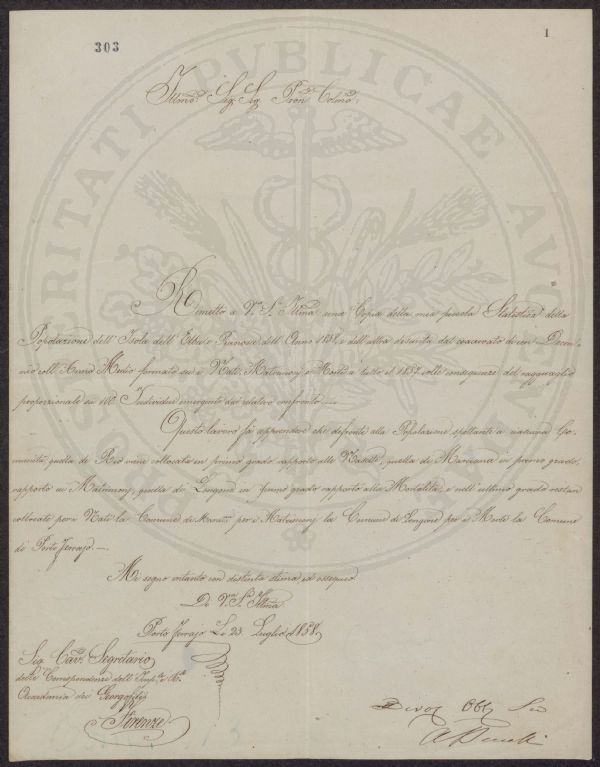 303
1
Illmo Sig. Sig. Pron. Colmo
Rimetto a V. S. Illma una Copia della mia piccola Statistica della
Popolazione dell' Isola dell' Elba e Pianosa dell' Anno 1858 e dell' altra desunta dal coacervato di un Decen
nio coll' Anno Medio formato su i Nati, Matrimonj e Morti a tutto il 1857 colle conseguenze del ragguaglio
proporzionale su 100 Individui emergente dal relativo confronto.
Questo lavoro fa apprendere che di fronte alla Popolazione spettante a ciascuna Co
munità, quella di Rio viene collocata in primo grado rapporto alle Nascite, quella di Marciana in primo grado,
rapporto ai Matrimonj, quella di Longone in primo grado rapporto alla Mortalità, e nell' ultimo grado restan
collocate per i Nati la Comune di per i Matrimonj la Comune di Longone per i Morti la Comune
di Porto Ferrajo.
Mi segno intanto con distinta stima ed ossequio
Di V. S. Illma
Porto Ferrajo Li 23 Luglio 1858
Sig. Cav. Segretario
delle Corrispondenze dell' Imp. e R.
Accademia dei Georgofili
Firenze
Devot Obb Ser
A
PROSPERITATI PVBLICAE AVGENDAE